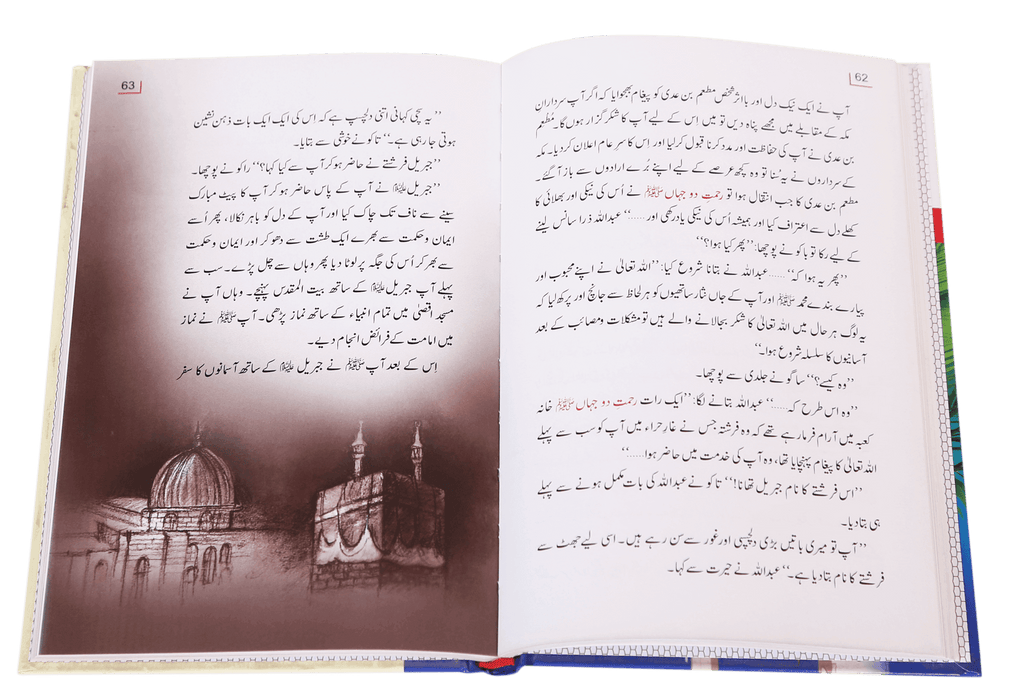 62
آپ نے ایک نیک دل اور بااثر شخص مطعم بن عدی کو پیغام بھجوایا کہ اگر آپ سردارانِ
مکہ کے مقابلے میں مجھے پناہ دیں تو میں اس کے لیے آپ کا شکر گزار ہوں گا۔ مُطعم
بن عدی نے آپ کی حفاظت اور مدد کرنا قبول کرلیا اور اس کا سرِ عام اعلان کردیا۔ مکہ
کے سرداروں نے یہ سُنا تو وہ کچھ عرصے کے لیے اپنے بُرے ارادوں سے باز آگئے۔
مطعم بن عدی کا جب انتقال ہوا تو رحمتِ دو جہاں ﷺ نے اُس کی نیکی اور بھلائی کا
کھلے دل سے اعتراف کیا اور ہمیشہ اُس کی نیکی یاد رکھی اور.....‘‘ عبداللہ ذرا سانس لینے
کے لیے رکا تو باکو نے پوچھا: ’’پھر کیا ہوا؟‘‘
’’پھر یہ ہوا کہ‘‘..... عبداللہ نے بتانا شروع کیا: ’’اللہ تعالیٰ نے اپنے محبوب اور
پیارے بندے محمد ﷺ اور آپ کے جاں نثار ساتھیوں کو ہر لحاظ سے جانچ اور پرکھ لیا کہ
یہ لوگ ہر حال میں اللہ تعالیٰ کا شکر بجالانے والے ہیں تو مشکلات ومصائب کے بعد
آسانیوں کا سلسلہ شروع ہوا۔‘‘
’’وہ کیسے؟‘‘ ساگو نے جلدی سے پوچھا۔
’’وہ اس طرح کہ.....‘‘ عبداللہ بتانے لگا: ’’ایک رات رحمتِ دو جہاں ﷺ خانہ
کعبہ میں آرام فرما رہے تھے کہ وہ فرشتہ جس نے غارِ حراء میں آپ کو سب سے پہلے
اللہ تعالیٰ کا پیغام پہنچایا تھا، وہ آپ کی خدمت میں حاضر ہوا.....‘‘
’’اس فرشتے کا نام جبریل تھا نا!‘‘ تاکو نے عبداللہ کی بات مکمل ہونے سے پہلے
ہی بتادیا۔
’’آپ تو میری باتیں بڑی دلچسپی اور غور سے سن رہے ہیں۔ اسی لیے جھٹ سے
فرشتے کا نام بتادیا ہے۔‘‘ عبداللہ نے حیرت سے کہا۔
63
’’یہ سچی کہانی اتنی دلچسپ ہے کہ اس کی ایک ایک بات ذہن نشین
ہوتی جا رہی ہے۔‘‘ تاکو نے خوشی سے بتایا۔
’’جبریل فرشتے نے حاضر ہوکر آپ سے کیا کہا؟‘‘ راکو نے پوچھا۔
’’جبریل علیہ السلام نے آپ کے پاس حاضر ہوکر آپ کا پیٹ مبارک
سینے سے ناف تک چاک کیا اور آپ کے دل کو باہر نکالا، پھر اُسے
ایمان وحکمت سے بھرے ایک طشت سے دھوکر اور ایمان وحکمت
سے بھر کر اُس کی جگہ پر لوٹا دیا پھر وہاں سے چل پڑے۔ سب سے
پہلے آپ جبریل علیہ السلام کے ساتھ بیت المقدس پہنچے۔ وہاں آپ نے
مسجد اقصیٰ میں تمام انبیاء کے ساتھ نماز پڑھی۔ آپ ﷺ نے نماز
میں امامت کے فرائض انجام دیے۔
اِس کے بعد آپ ﷺ نے جبریل علیہ السلام کے ساتھ آسمانوں کا سفر